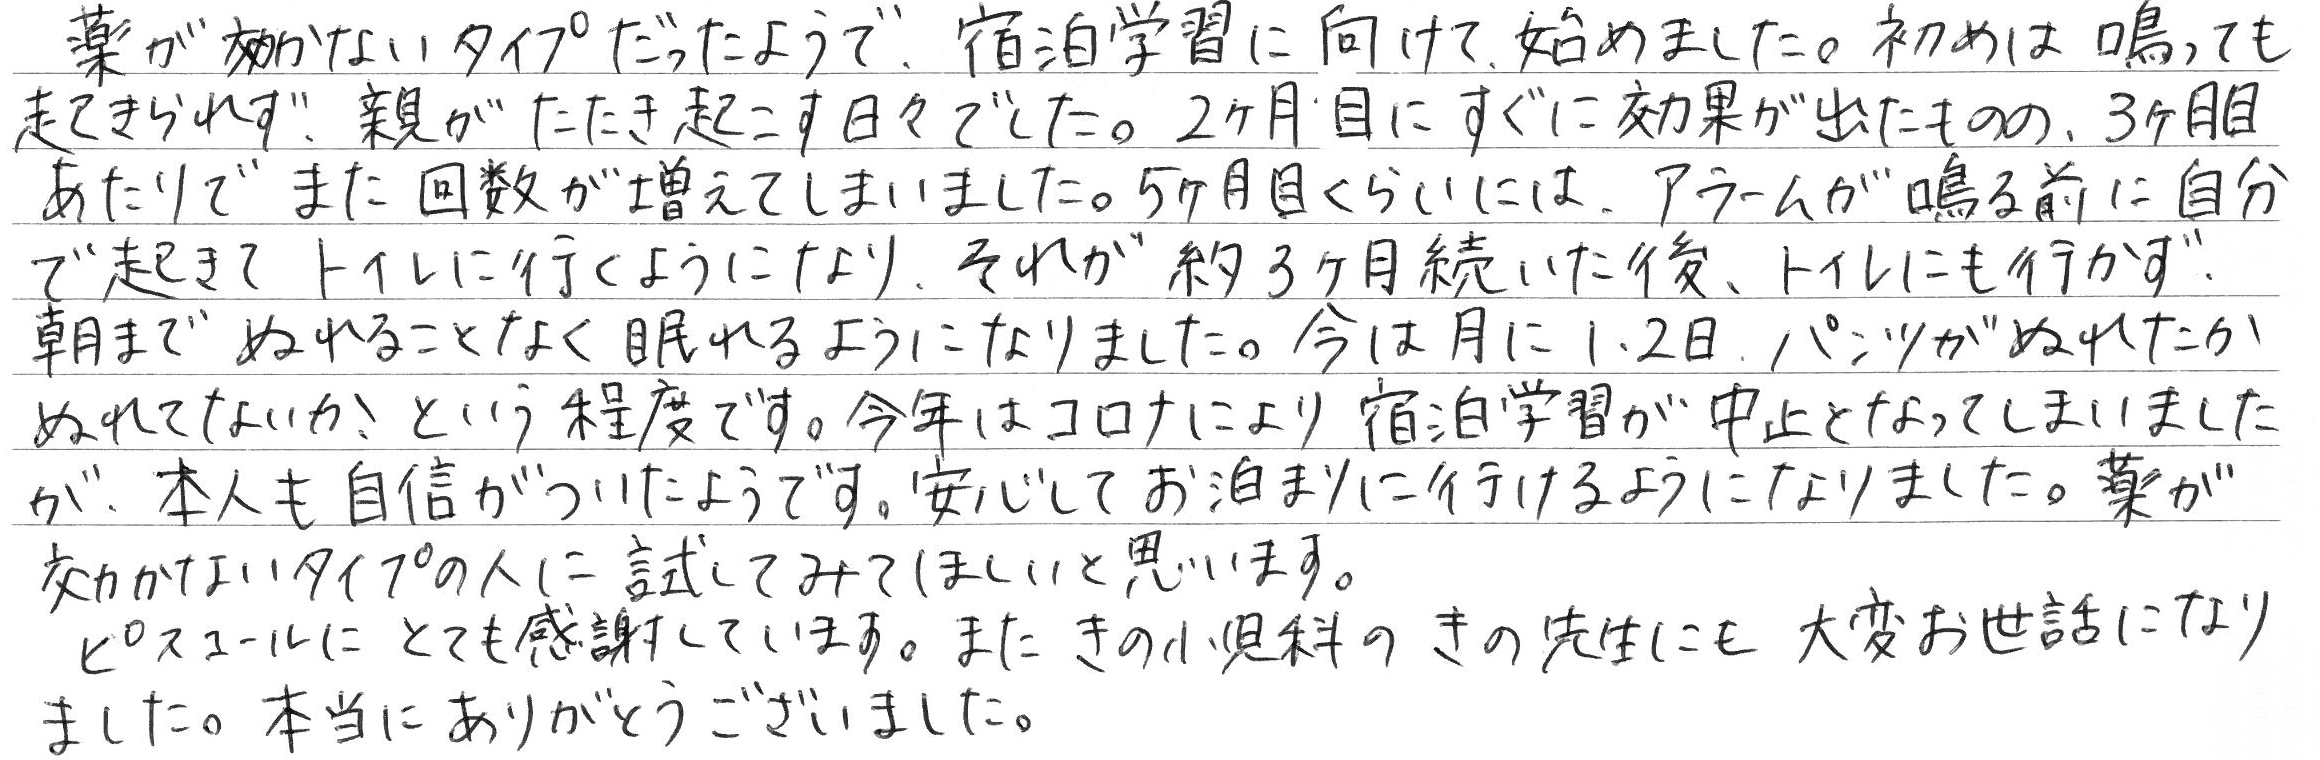 薬が効かないタイプだったようで、宿泊学習に向けて、始めました。初めは鳴っても
起きられず、親がたたき起こす日々でした。2ヶ月目にすぐに効果が出たものの、3ヶ月目
あたりでまた回数が増えてしまいました。5ヶ月目くらいには、アラームが鳴る前に自分
で起きてトイレに行くようになり、それが約3ヶ月続いた後、トイレにも行かず、
朝までぬれることなく眠れるようになりました。今は月に1、2日、パンツがぬれたか
ぬれてないか、という程度です。今年はコロナにより宿泊学習が中止となってしまいました
が、本人も自信がついたようです。安心してお泊まりに行けるようになりました。薬が
効かないタイプの人に試してみてほしいと思います。
ピスコールにとても感謝しています。またきの小児科のきの先生にも大変お世話になり
ました。本当にありがとうございました。